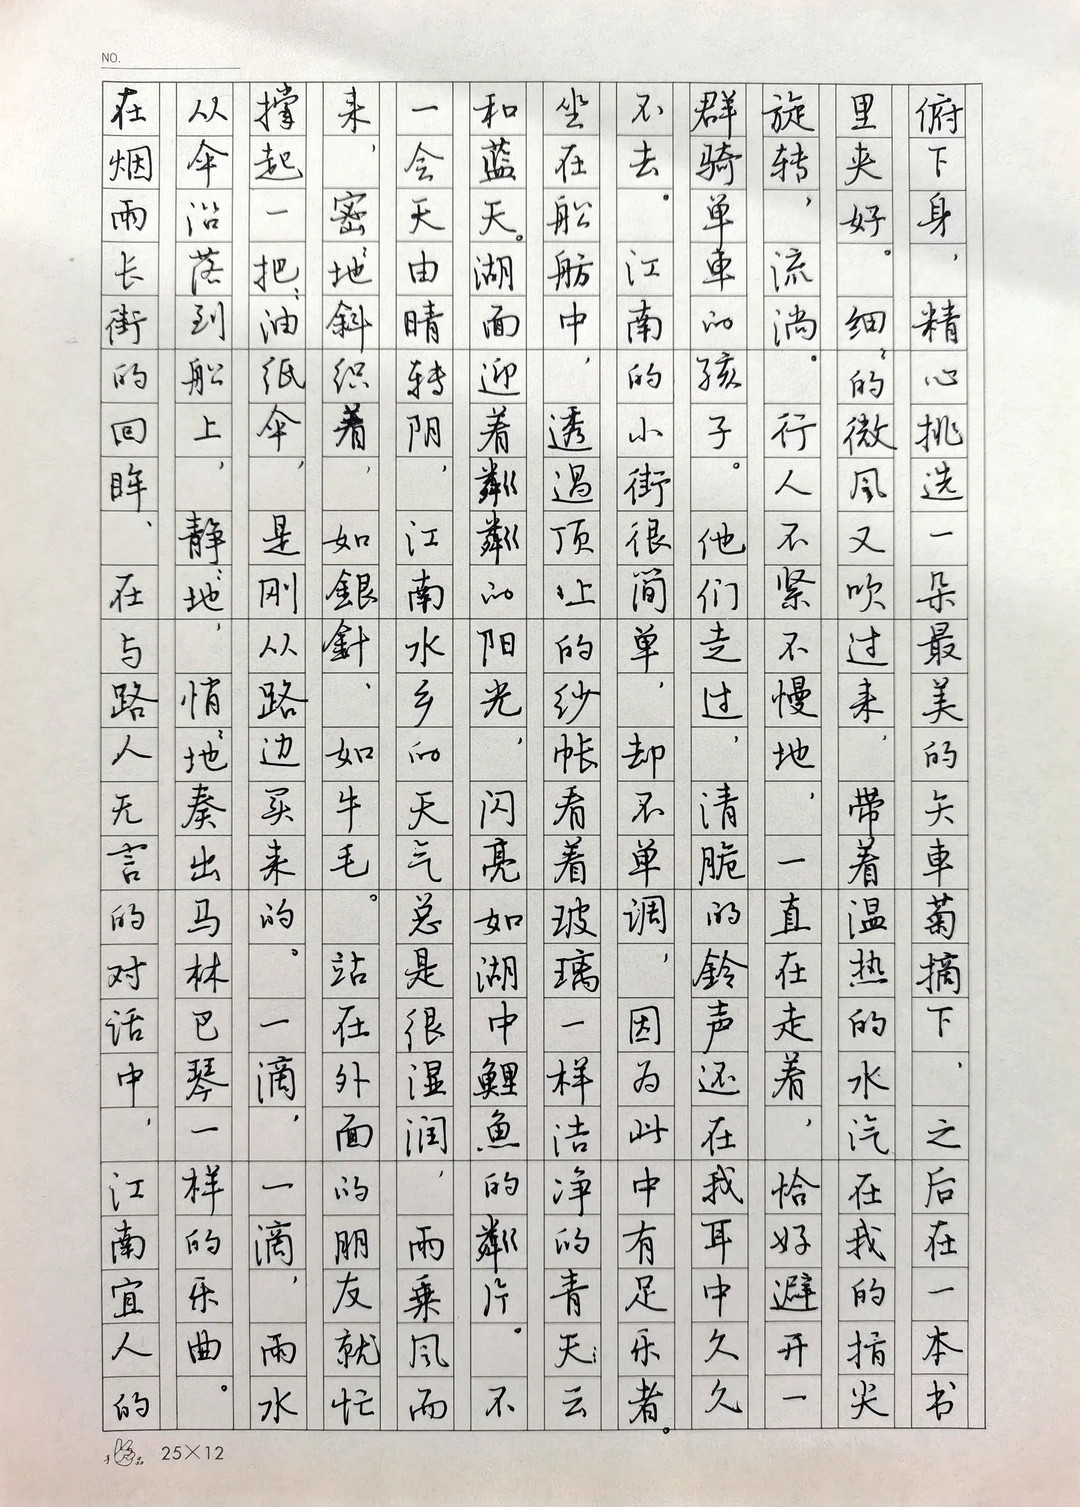 NO.
俯下身，精心挑选一朵最美的矢車菊摘下，之后在一本书
里夹好。细〻的微风又吹过来，带着温热的水汽在我的指尖
旋转，流淌。行人不紧不慢地，一直在走着，恰好避开一
群骑单車的孩子。他们走过，清脆的鈴声还在我耳中久久
不去。江南的小街很简单，却不单调，因为此中有足乐者。
坐在船舫中，透过顶上的纱帐看着玻璃一样洁净的青天〻云
和蓝天。湖面迎着粼粼的阳光，闪亮如湖中鯉魚的粼片。不
一会天由晴转阴，江南水乡的天气总是很湿润，雨乗风而
来，密〻地斜织着，如銀針、如牛毛。站在外面的朋友就忙
撑起一把〻油纸伞，是刚从路边买来的。一滴，一滴，雨水
从伞沿落到船上，静〻地，悄〻地奏出马林巴琴一样的乐曲。
在烟雨长街的回眸、在与路人无言的对话中，江南宜人的
25×12